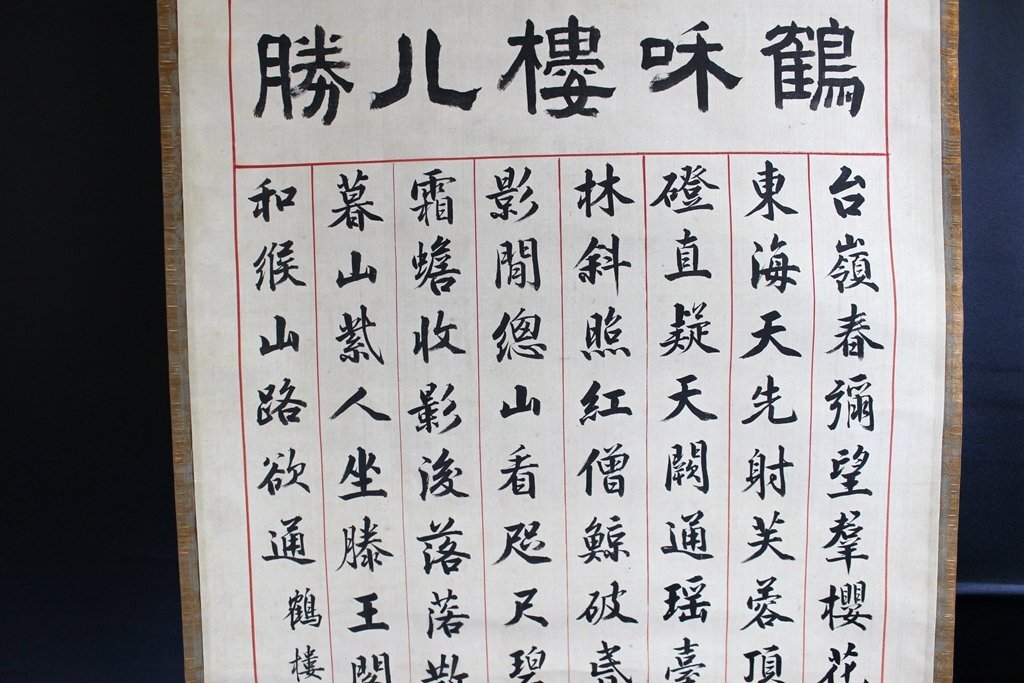 鶴咊樓八勝
台嶺春彌望羣櫻花
東海天先射芙蓉頂
磴直疑天闕通瑶臺
林斜照紅僧鯨破
影閒總山看咫尺碧
霜蟾收影後落落散
暮山紫人坐滕王閣
和緱山路欲通鶴樓